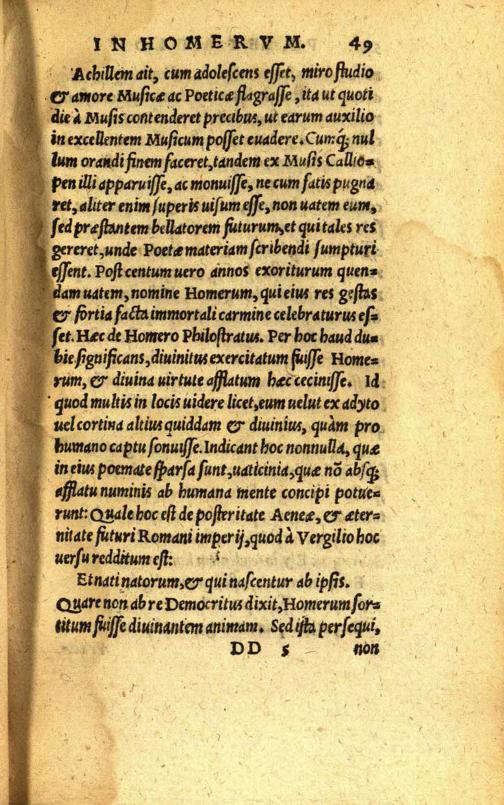 IN HOMERVM. 49
Achillem ait, cum adolescens esset, miro studio
& amore Musicæ ac Poeticæ flagrasse, ita ut quoti
die à Musis contenderet precibus, ut earum auxilio
in excellentem Musicum posset euadere. Cumq́; nul
lum orandi finem faceret, tandem ex Musis Callio=
pen illi apparuisse, ac monuisse, ne cum fatis pugna
ret, aliter enim superis uisum esse, non uatem eum,
sed præstantem bellatorem futurum, et qui tales res
gereret, unde Poetæ materiam scribendi sumpturi
essent. Post centum uero annos exoriturum quen=
dam uatem, nomine Homerum, qui eius res gestas
& fortia facta immortali carmine celebraturus es=
set. Hæc de Homero Philostratus. Per hoc haud du=
bie significans, diuinitus exercitatum fuisse Home=
rum, & diuina uirtute afflatum hæc cecinisse. Id
quod multis in locis uidere licet, eum uelut ex adyto
uel cortina altius quiddam & diuinius, quàm pro
humano captu sonuisse. Indicant hoc nonnulla, quæ
in eius poemate sparsa sunt, uaticinia, quæ nõ absq;
afflatu numinis ab humana mente concipi potue=
runt: Quale hoc est de posteritate Aeneæ, & æter=
nitate futuri Romani imperij, quod à Vergilio hoc
uersu redditum est:
Et nati natorum, & qui nascentur ab ipsis.
Quare non ab re Democritus dixit, Homerum sor=
titum fuisse diuinantem animam. Sed ista persequi,
DD 5 non